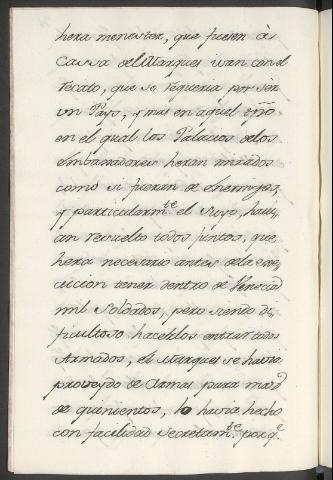 hera menester, que fuesen às
Cassa del Marques ivan con el
recato, que se requeria por ser
un Pays, y mas en aquel tpõ
en el qual los Palacios de los
Embaxadores heran mirados
como si fueran de Enemigos,
y particularm.te el Suyo, havi-
an resuelto todos juntos, que
hera necesario antes de la exe-
cucion tener dentro de Venecia
mil Soldados, pero siendo di-
ficultoso hacerlos entrar todos
Armados, el Marques se havia
proveydo de Armas para mas
de quinientos, lo havia hecho
con facilidad secretam.te porq.e